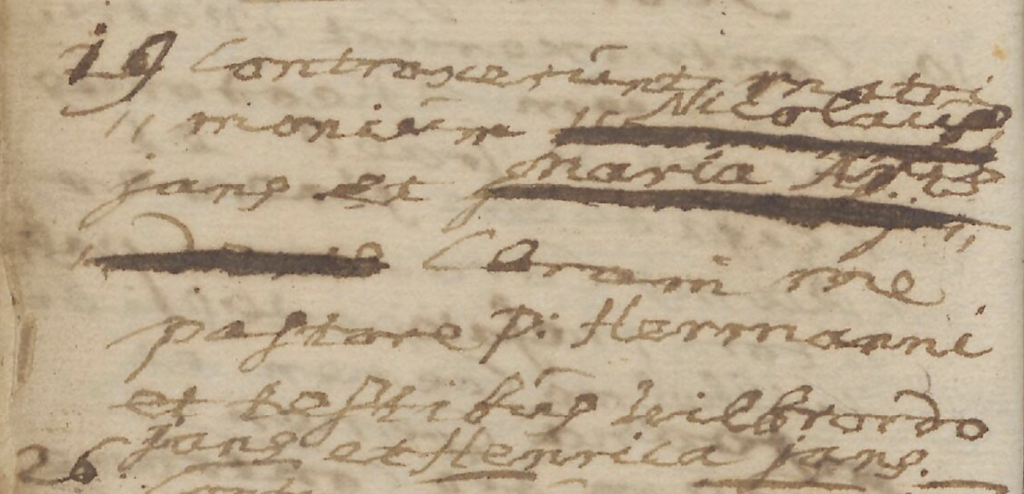 19 Contraxerunt matri
" monium Nicolaus
jans et Maria
Coram me
pastore P: Hermanni
et testibus Wilbrordo
jans et Henrica jans.
26